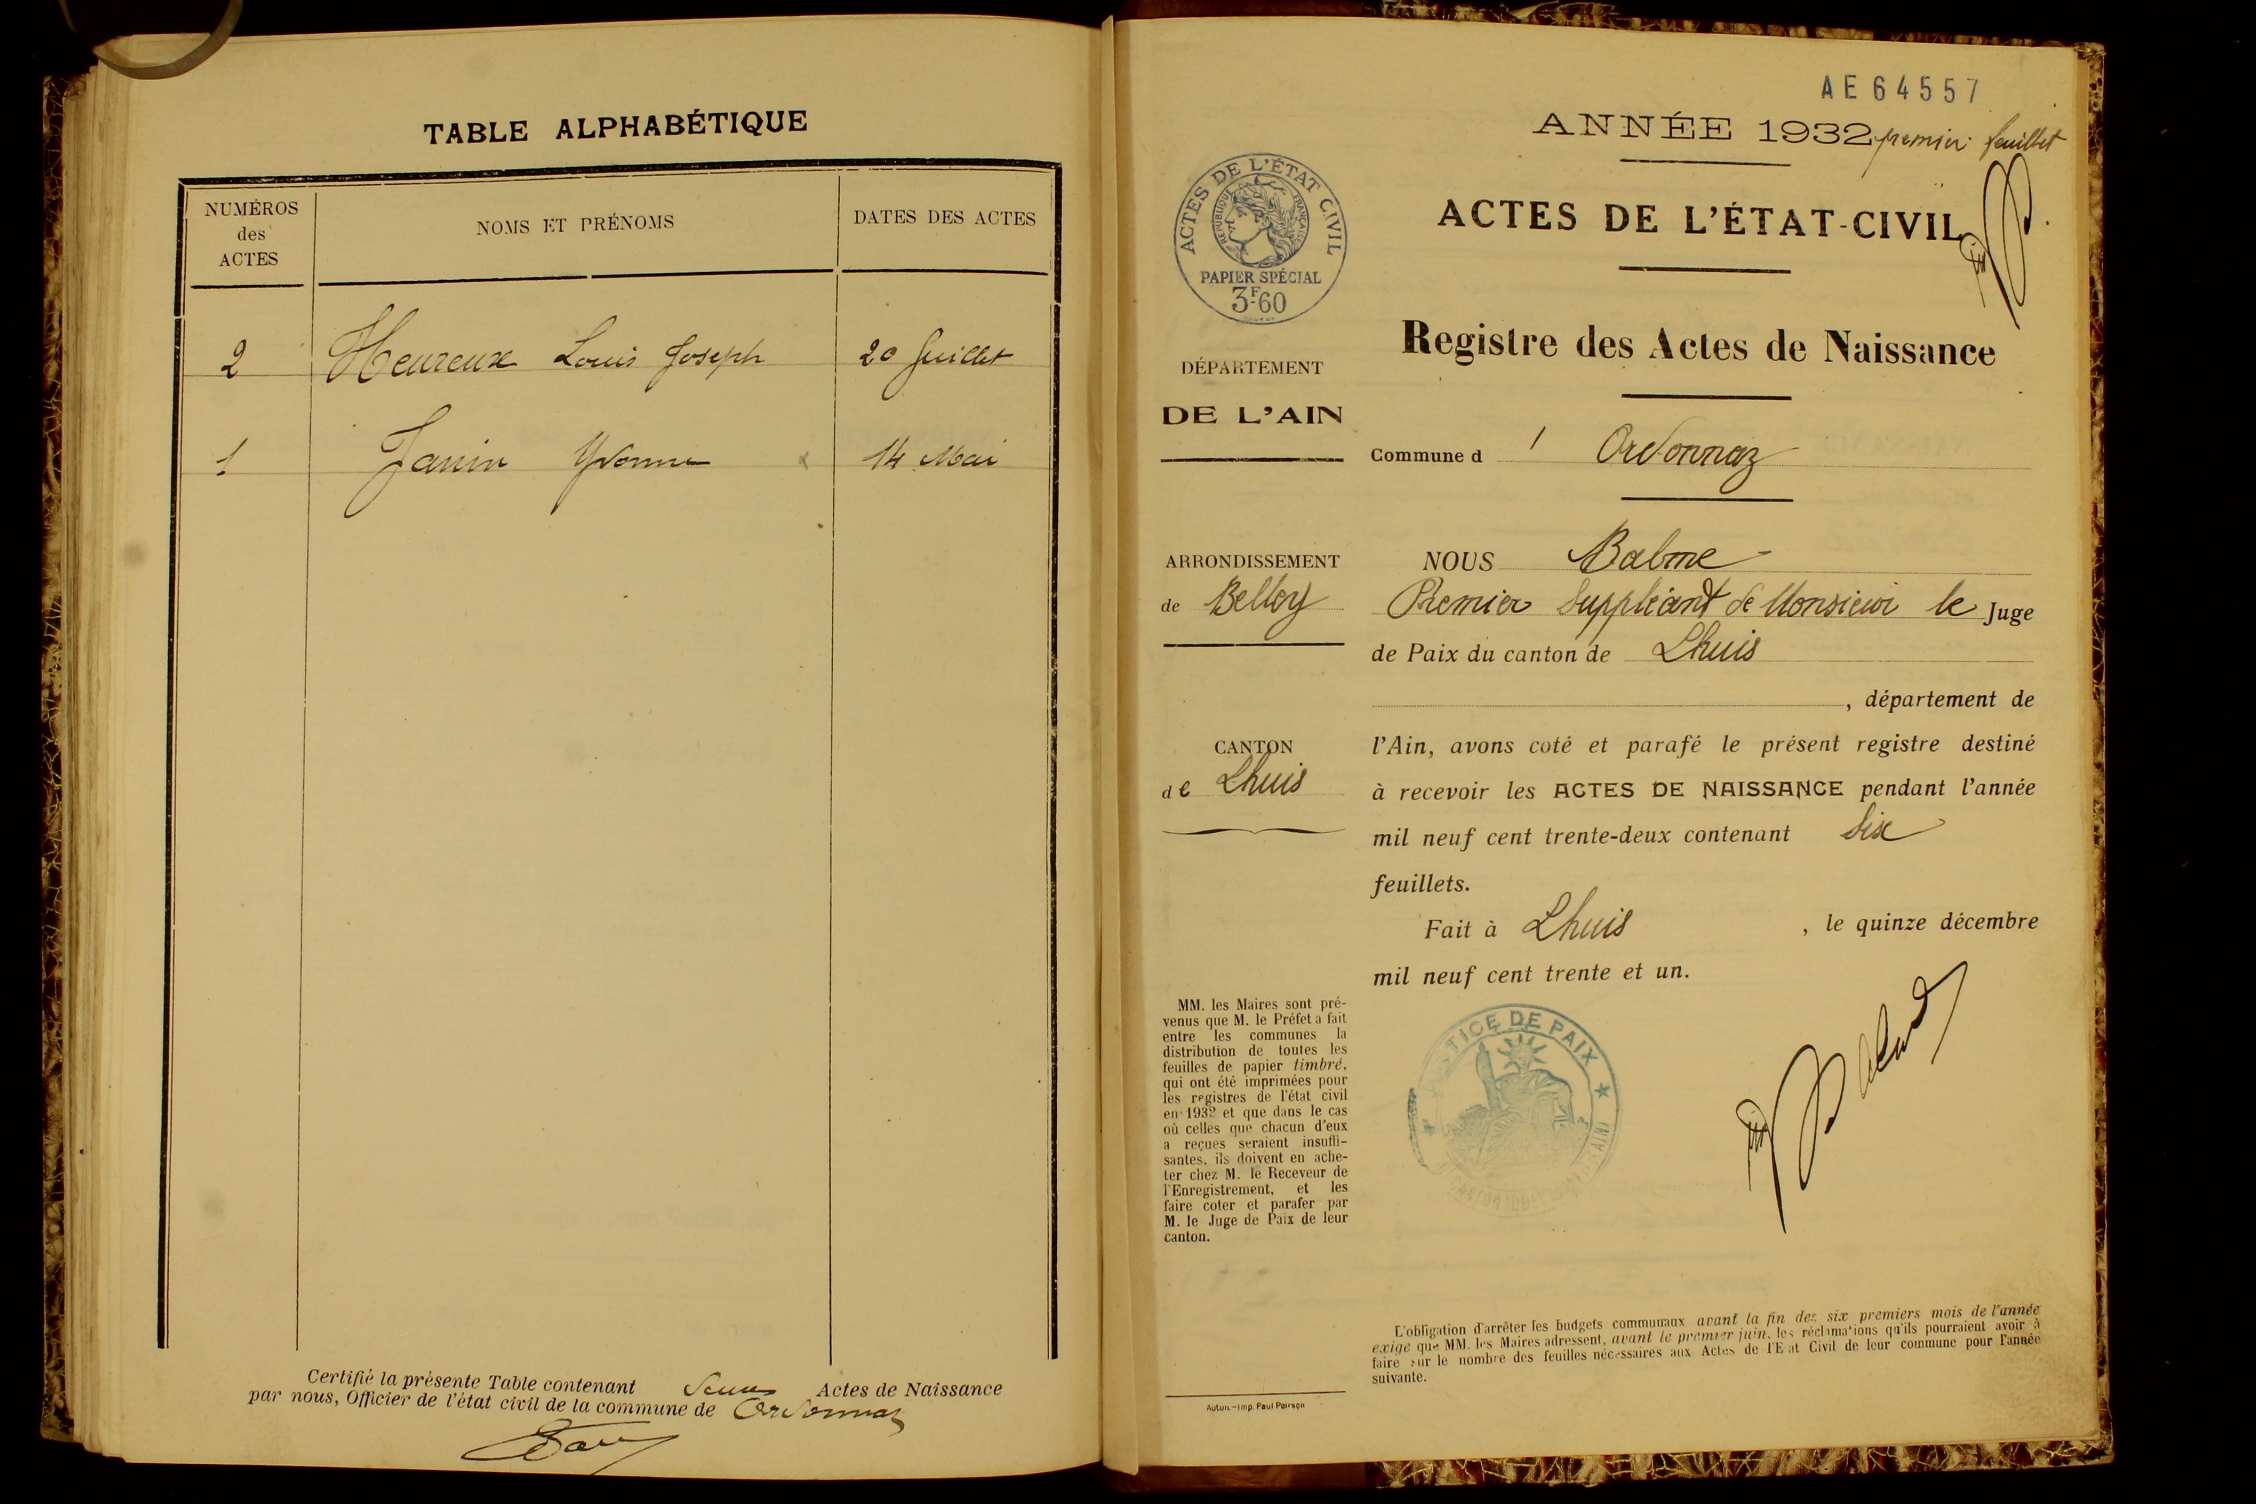 TABLE ALPHABÉTIQUE
NUMÉROS
des
ACTES
NOMS ET PRÉNOMS
DATES DES ACTES
2 Heureux Louis Joseph 20 Juillet
1 Janin Yvonne 14 Mai
Certifié la présente Table contenant Actes de Naissance
par nous, Officier de l'état civil de la commune de Ordonnaz
AE64557
ANNÉE 1932 premier feuillet
ACTES DE L'ÉTAT CIVIL
RÉPUBLIQUE FRANÇAISE
PAPIER SPÉCIAL
3F60
ACTES DE L'ÉTAT-CIVIL
Registre des Actes de Naissance
DÉPARTEMENT
DE L'AIN
Commune d' Ordonnaz
ARRONDISSEMENT
de Belley
CANTON
de Lhuis
NOUS Balme
Premier Suppléant de Monsieur le Juge
de Paix du canton de Lhuis
, département de
l'Ain, avons coté et parafé le présent registre destiné
à recevoir les ACTES DE NAISSANCE pendant l'année
mil neuf cent trente-deux contenant Six
feuillets.
Fait à Lhuis , le quinze décembre
mil neuf cent trente et un.
MM. les Maires sont pré-
venus que M. le Préfet a fait
entre les communes la
distribution de toutes les
feuilles de papier timbré,
qui ont été imprimées pour
les registres de l'état civil
en 1932 et que dans le cas
où celles que chacun d'eux
a reçues seraient insuffi-
santes, ils doivent en ache-
ter chez M. le Receveur de
l'Enregistrement, et les
faire coter et parafer par
M. le Juge de Paix de leur
canton.
JUSTICE DE PAIX
(AIN)
L'obligation d'arrêter les budgets communaux avant la fin des six premiers mois de l'année
exige que MM. les Maires adressent, avant le premier juin, les réclamations qu'ils pourraient avoir à
faire sur le nombre des feuilles nécessaires aux Actes de l'Etat Civil de leur commune pour l'année
suivante.
Autun.-Imp. Paul Poirson